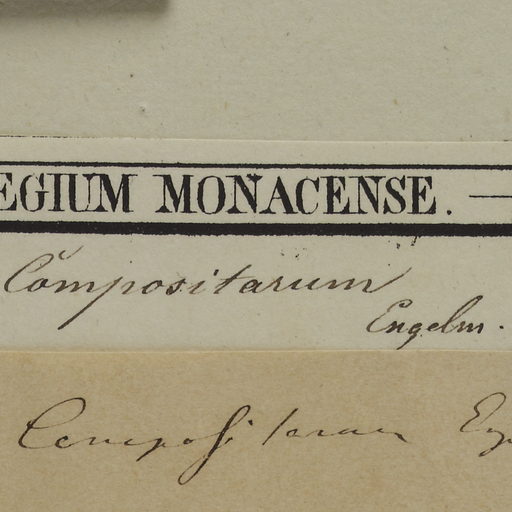 EGIUM MONACENSE. —
Compositarum
Engelm.
Compositarum Eng